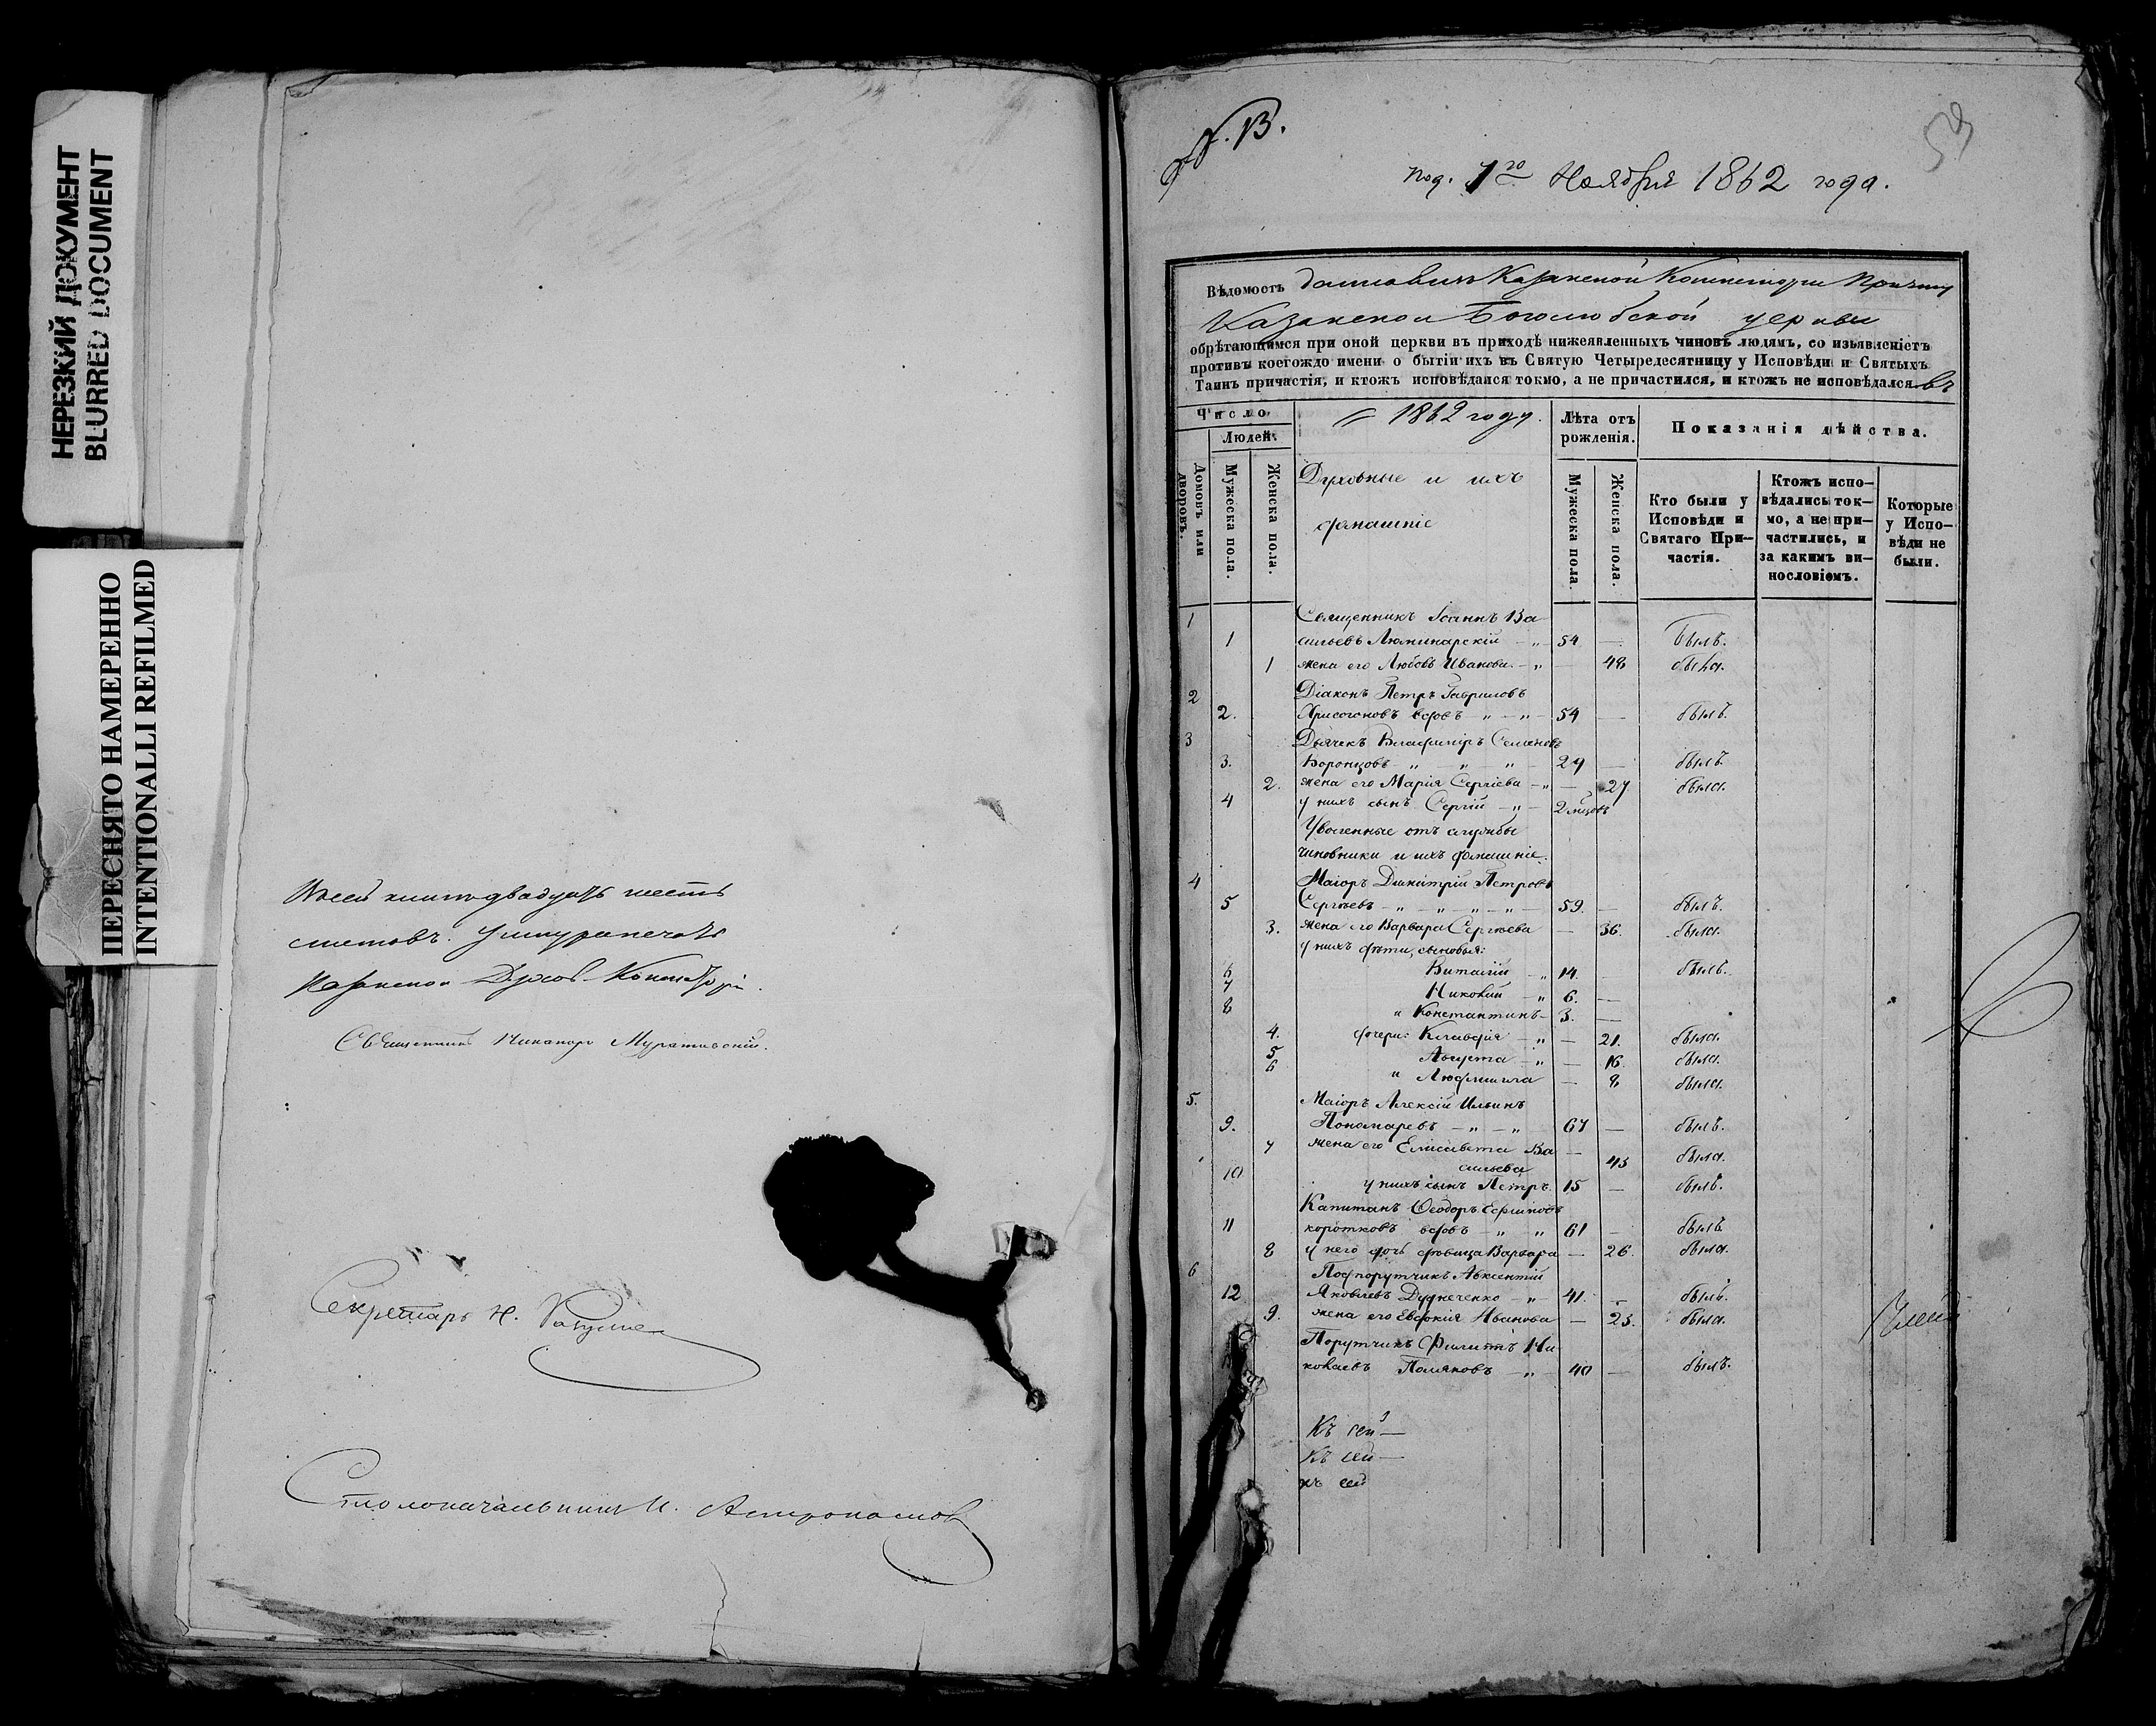 НЕРЕЗКИЙ ДОКУМЕНТ
BLURRED DOCUMENT
ПЕРЕСНЯТО НАМЕРЕННО
INTENTIONALLI REFILMED
двадцать шесть
листовъ.
Казанской Духов. Консисторіи.
Священникъ Никаноръ
Секретарь Н.
Столоначальникъ И. Астрономовъ
59
под. 1го Ноября 1862 года.
Вѣдомость Казанской Консисторіи Причту
Казанской Боголюбской церкви
обрѣтающимся при оной церкви въ приходѣ нижеявленныхъ чиновъ людямъ, со изъявленіетъ
противъ коегождо имени о бытіи ихъ въ Святую Четыредесятницу у Исповѣди и Святыхъ
Таинъ причастія, и ктожъ исповѣдался токмо, а не причастился, и ктожъ не исповѣдался въ
Число
Людей.
Домовъ или дворовъ.
Мужеска пола.
Женска пола.
1862 году.
Духовные и ихъ
домашніе
Лѣта отъ рожденія.
Мужеска пола
Женска пола.
Показанія дѣйства.
Кто были у Исповѣди и Святаго Причастія.
Ктожъ исповѣдались токмо, а не причастились, и за какимъ винословіемъ.
Которые у Исповѣди не были.
1 Священникъ Іоаннъ Ва
1 сильевъ Люминарскій — „ — 54 — былъ.
1 жена его Любовь Иванова — „ — 48 была.
2 Діаконъ Петръ Гавриловъ
2. Хрисогоновъ вдовъ — „ — „ — 54 — былъ.
3 Дьячекъ Владиміръ Семеновъ
3. Воронцовъ „ — „ — „ — 29 — былъ.
2. жена его Марія Сергіева — „ — 27 была.
4 у нихъ сынъ Сергій — „ — 2 мѣсцовъ
Уволенные отъ службы
чиновники и ихъ домашніе.
4 Маіоръ Димитрій Петровъ
5 Сергѣевъ — „ — „ — „ — „ — 59. — былъ.
3. жена его Варвара Сергѣева — 36. была.
у нихъ дѣти, сыновья:
6 Виталій — „ 14. — былъ.
7 Николай — „ 6. —
8 „ Константинъ — 3. —
4. дочери: Клавдія — „ — 21. была.
5 Августа — „ — 16. была.
6 „ Людмила — 8 была.
5. Маіоръ Алексій Ильинъ
9. Пономаревъ — „ — „ 67 — былъ.
7 жена его Елисавета Ва —
сильева 45 была.
10 у нихъ сынъ Петръ. 15 — былъ.
Капитанъ Ѳеодоръ Ефимовъ
11 Коротковъ вдовъ — „ „ 61 — былъ.
8 у него дочь дѣвица Варвара — 26. была.
6 Подпорутчикъ Авксентій
12 Яковлевъ Дудченко — „ — 41. — былъ.
9. жена его Евдокія Иванова — 25. была.
Порутчикъ Филиппъ Ни
колаевъ Поляковъ — „ — 40 — былъ.
Къ сей —
Къ сей —
къ сей